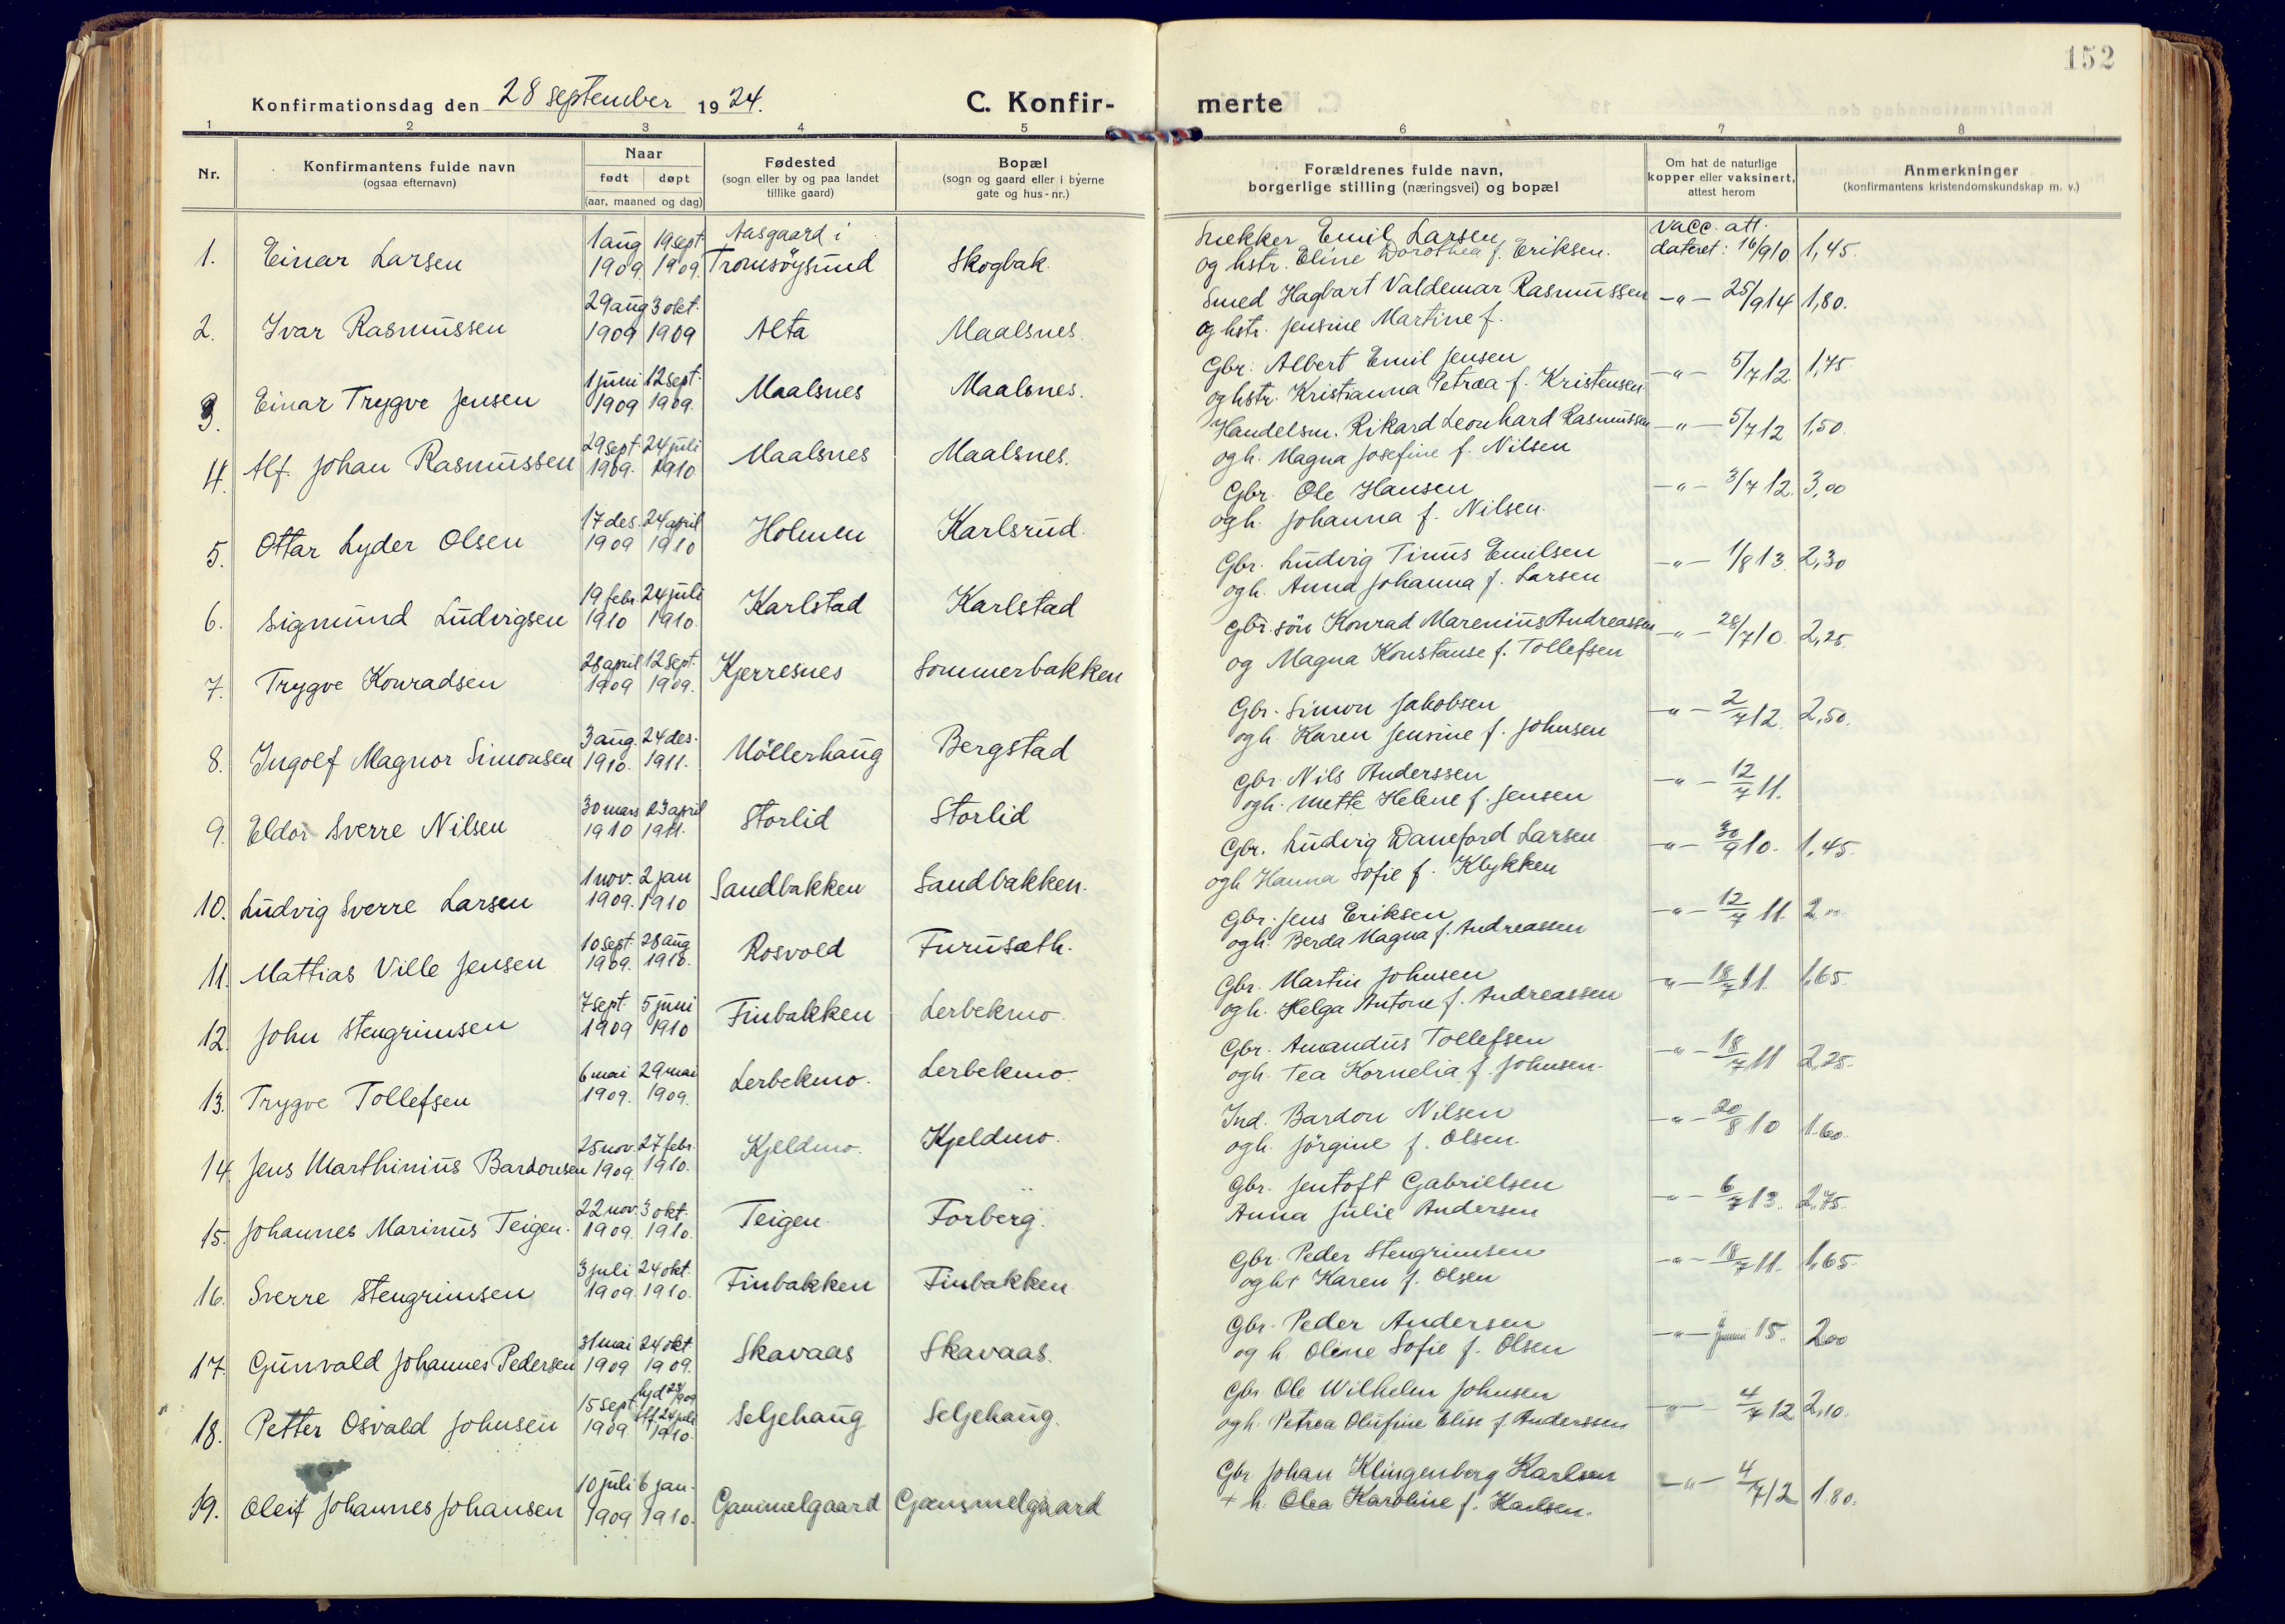 152
Konfirmationsdag den 28 september 1924.
C. Konfir-
merte
1 2 3 4 5 6 7 8
Nr.
Konfirmantens fulde navn
(ogsaa efternavn)
Naar
født døpt
(aar, maaned og dag)
Fødested
(sogn eller by og paa landet
tillike gaard)
Bopæl
(sogn og gaard eller i byerne
gate og hus-nr.)
Forældrenes fulde navn,
borgerlige stilling (næringsvei) og bopæl
Om hat de naturlige
kopper eller vaksinert,
attest herom
Anmerkninger
(konfirmantens kristendomskundskap m. v.)
1. Einar Larsen 1 aug 1909. 19 sept. 1909. Aasgaard i Tromsöysund Skogbak.
Snekker Emil Larsen
og hstr. Eline Dorothea f. Eriksen. Vacc. att. dateret: 16/910. 1,45.
2. Ivar Rasmussen 29 aug 1909 3 okt. 1909 Alta Maalsnes.
Smed Hagbart Valdemar Rasmussen
og hstr. Jensine Martine f. -"- 25/914 1,80.
3. Einar Trygve Jensen 1 juni 1909 12 sept. 1909. Maalsnes Maalsnes.
Gbr. Albert Emil Jensen
og hstr. Kristianna Petræa f. Kristensen -"- 5/712. 1,75.
4. Alf. Johan Rasmussen 29 sept 1909. 24 juli 1910 Maalsnes Maalsnes.
Handelsm. Rikard Leonhard Rasmussen
og h. Magna Josefine f. Nilsen -"- 5/712 1,50.
5. Ottar Lyder Olsen 17 des. 1909 24 april 1910 Holmen Karlsrud.
Gbr. Ole Hansen
og h. Johanna f. Nilsen. -"- 3/712. 3,00
6. Sigmund Ludvigsen 19 febr. 1910 24 juli 1910. Karlstad Karlstad
Gbr. Ludvig Tinus Emilsen
og h. Anna Johanna f. Larsen -"- 1/813. 2,30
7. Trygve Konradsen 28 april 1909 12 sept. 1909. Kjerresnes Sommerbakken
Gbr. sön Konrad Marenius Andreassen
og Magna Konstanse f. Tollefsen -"- 28/710. 2,25.
8. Ingolf Magnor Simonsen 3 aug. 1910. 24 des. 1911. Möllerhaug Bergstad
Gbr. Simon Jakobsen
og h. Karen Jensine f. Johnsen -"- 2/712. 2,50.
9. Eldor Sverre Nilsen 30 mars 1910 23 april 1911. Storlid Storlid
Gbr. Nils Anderssen
og h. Mette Helene f. Jensen -"- 12/711.
10. Ludvig Sverre Larsen 1 nov. 1909. 2 jan 1910 Sandbakken Sandbakken.
Gbr. Ludvig Daneford Larsen
og h Hanna Sofie f. Klykken -"- 30/910. 1,45.
11. Mattias Ville Jensen 10 sept. 1909. 28 aug 1910. Rosvold Furusæth.
Gbr. Jens Eriksen
og h. Berda Magna f. Andreassen -"- 12/711. 2.00.
12. John Stengrimsen 7 sept. 1909 5 juni 1910 Finbakken Lerbekmo.
Gbr. Martin Johnsen
og h. Helga Antone f. Andreassen -"- 18/711. 1,65.
13. Trygve Tollefsen 6 mai 1909. 29 mai 1909. Lerbekmo. Lerbekmo.
Gbr. Amandus Tollefsen
og h. Tea Kornelia f. Johnsen. -"- 18/711 2,25.
14. Jens Marthinius Bardonsen 25 nov. 1909. 27 febr. 1910. Kjeldmo. Kjeldmo.
Ind. Bardon Nilsen
og h. Jörgine f. Olsen. -"- 20/810 1.60.
15. Johannes Marinus Teigen. 22 nov. 1909. 3 okt. 1910. Teigen. Forberg.
Gbr. Jentoft Gabrielsen
Anna Julie Andersen -"- 6/713. 2,75.
16. Sverre Stengrimsen 3 juli 1909. 24 okt. 1910. Finbakken Finbakken.
Gbr. Peder Stengrimsen
og h+ Karen f. Olsen -"- 18/711. 1,65.
17. Gunvald Johannes Pedersen 31 mai 1909 24 okt 1909. Skavaas Skavaas.
Gbr. Peder Andersen
og h. Oline Sofie f. Olsen -"- Juni 15. 2.00
18. Petter Osvald Johnsen 15 sept. 1909 hjd 28/909 stf. 24 juli 1910. Seljehaug Seljehaug.
Gbr. Ole Wilhelm Johnsen
og h. Petrea Olufine Elise f. Anderssen -"- 4/712 2,10.
19. Oleif Johannes Johansen 10 juli 1909 6 jan. 1910. Gammelgaard Gammelgaard
Gbr. Johan Klingenberg Karlsen
+ h. Olea Karoline f. Karlsen. -"- 4/712 1.80.